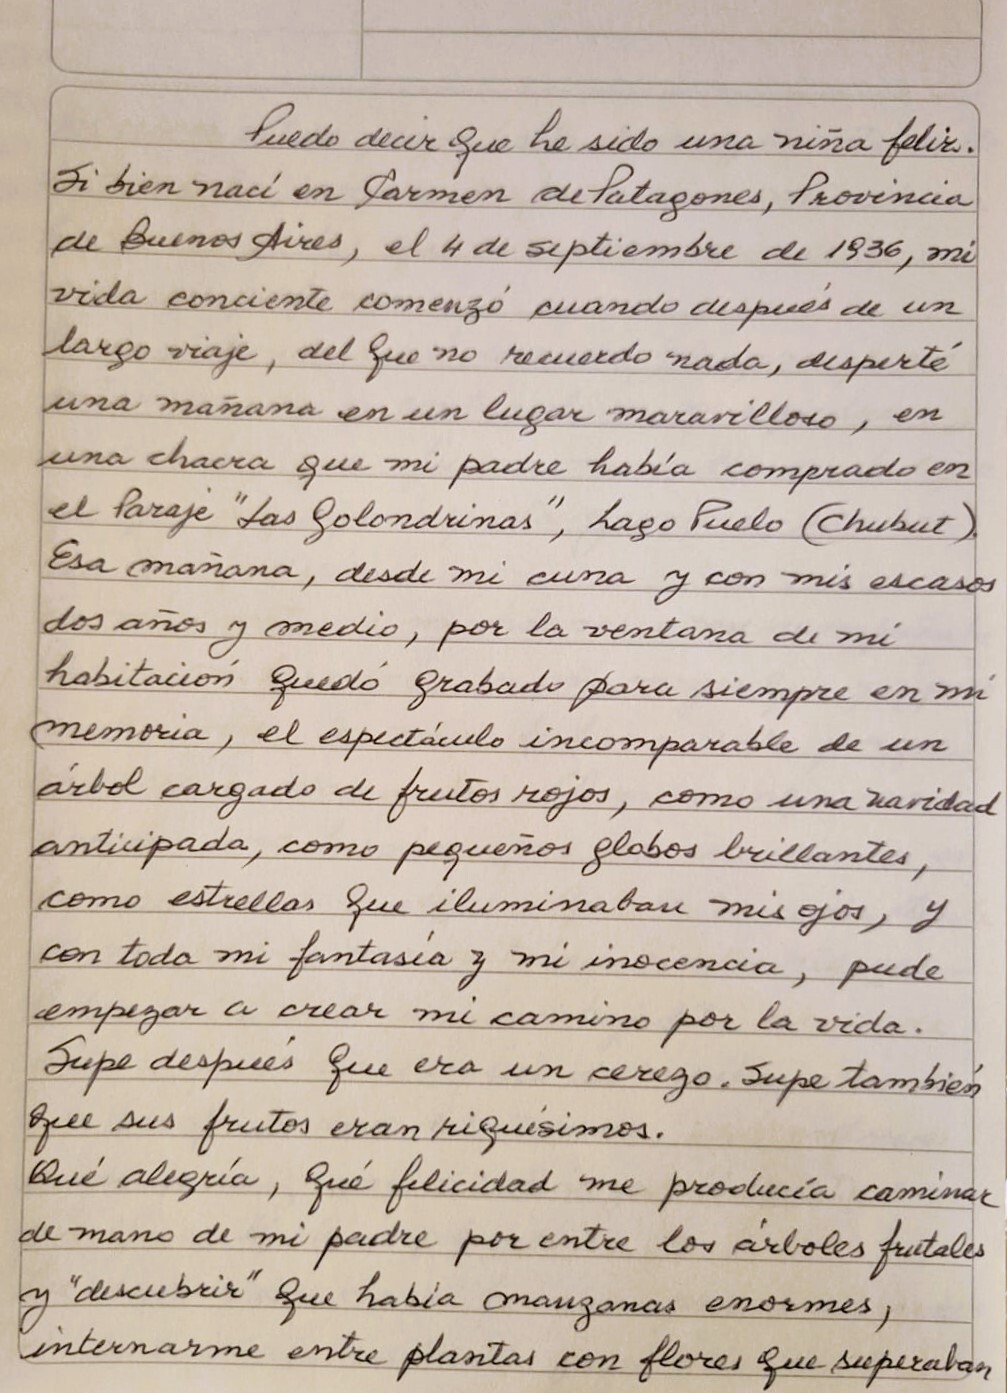 Puedo decir que he sido una niña feliz.
Si bien nací en Carmen de Patagones, Provincia
de Buenos Aires, el 4 de septiembre de 1936, mi
vida conciente comenzó cuando después de un
largo viaje, del que no recuerdo nada, desperté
una mañana en un lugar maravilloso, en
una chacra que mi padre había comprado en
el Paraje "Las Golondrinas", Lago Puelo (Chubut).
Esa mañana, desde mi cuna y con mis escasos
dos años y medio, por la ventana de mi
habitación quedó grabado para siempre en mi
memoria, el espectáculo incomparable de un
árbol cargado de frutos rojos, como una navidad
anticipada, como pequeños globos brillantes,
como estrellas que iluminaban mis ojos, y
con toda mi fantasía y mi inocencia, pude
empezar a crear mi camino por la vida.
Supe después que era un cerezo. Supe también
que sus frutos eran riquésimos.
Qué alegría, qué felicidad me producía caminar
de mano de mi padre por entre los árboles frutales
y "descubrir" que había manzanas enormes,
internarme entre plantas con flores que superaban